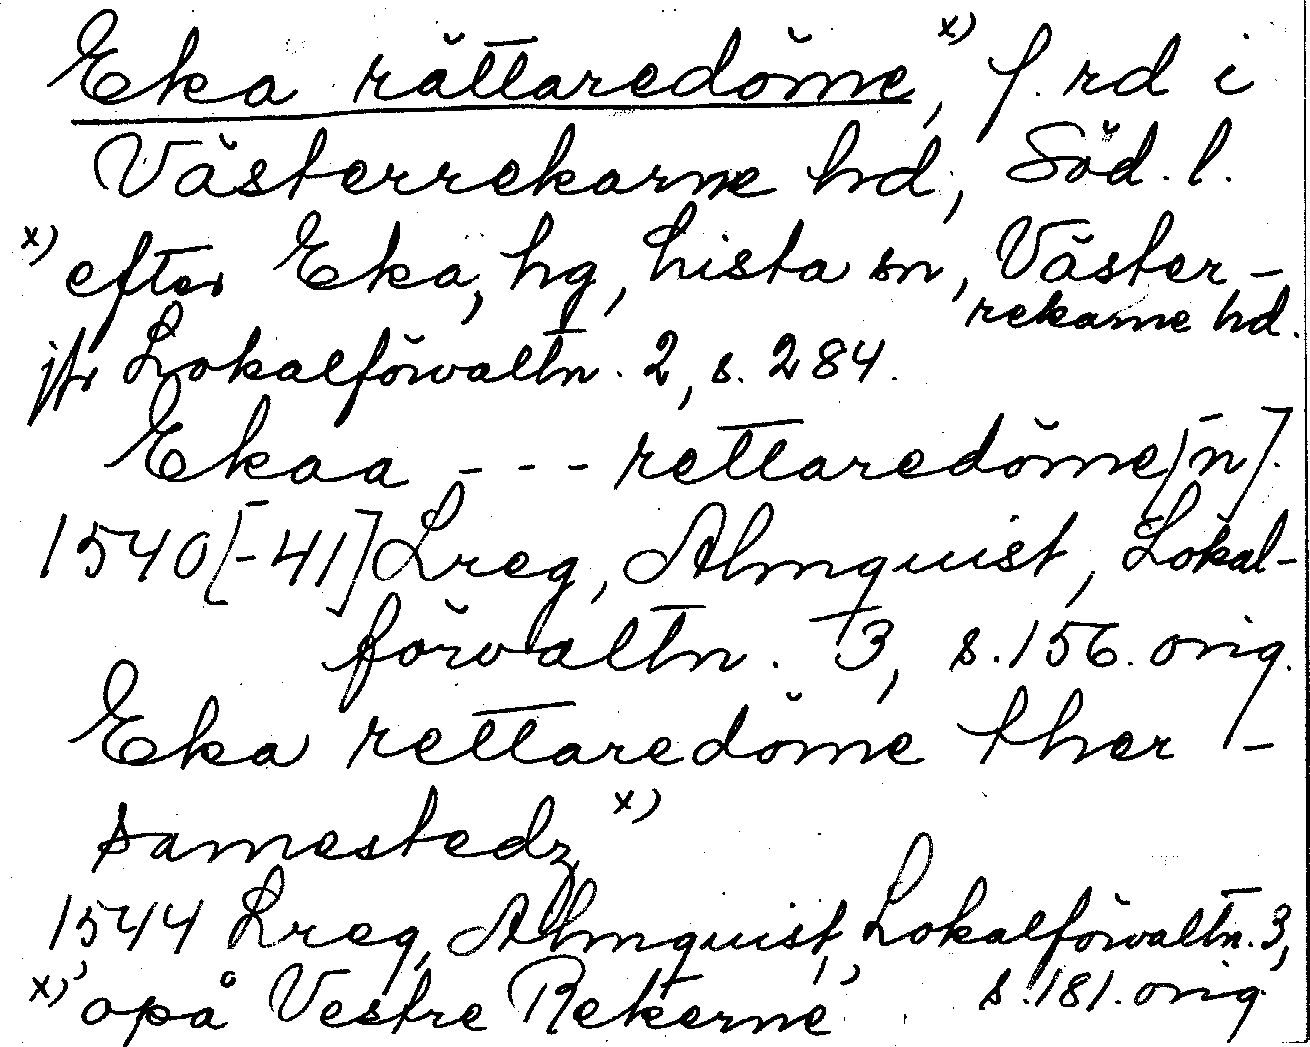 Eka rättaredöme,ˣ⁾ f. rd i
Västerrekarne hd, Söd. l.
x) efter Eka, hg, Lista sn, Väster-
rekarne hd.
jfr Lokalförvaltn. 2, s. 284.
Ekaa - - - rettaredöme[n].
1540[-41] Lreg, Almquist, Lokal-
förvaltn. 3, s. 156. orig.
Eka rettaredöme ther-
samestedz x)
1544 Lreg, Almquist, Lokalförvaltn. 3,
s. 181. orig
x) 'opå Vestre Rekerne'